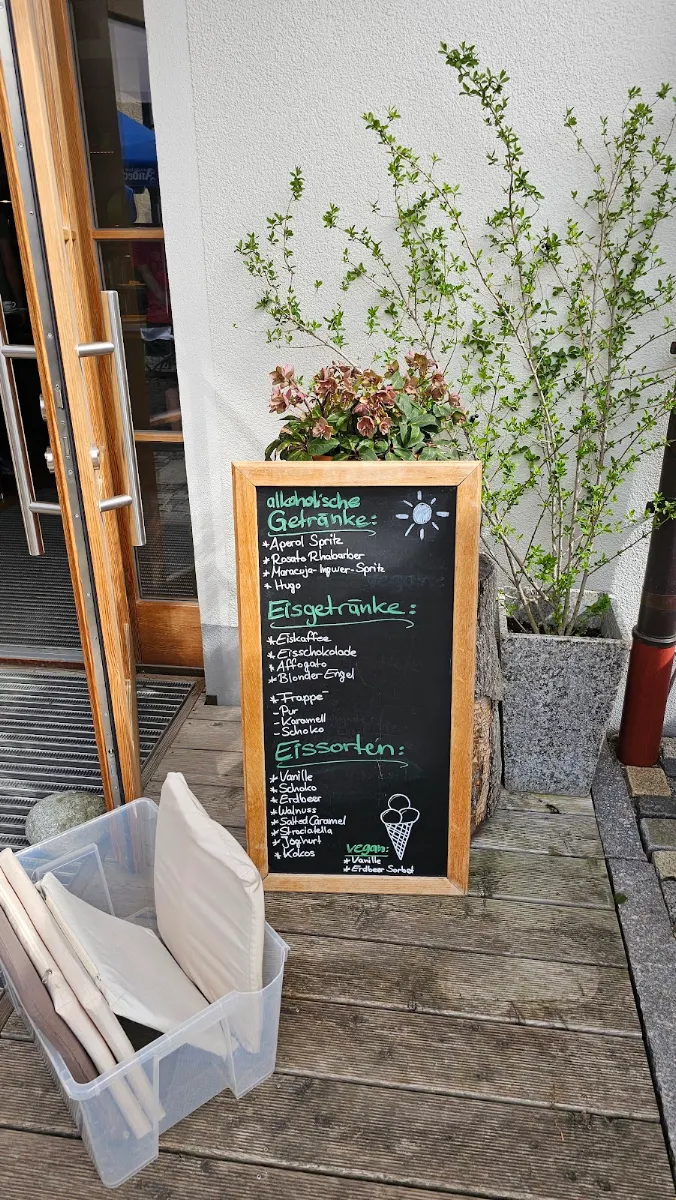 alkoholische
Getränke:
* Aperol Spritz
* Rosato Rhabarber
* Maracuja-Ingwer-Spritz
* Hugo
Eisgetränke:
* Eiskaffee
* Eisschokolade
* Affogato
* Blonder Engel
* Frappe
- Pur
- Karamell
- Schoko
Eissorten:
* Vanille
* Schoko
* Erdbeer
* Walnuss
* Salted Caramel
* Straciatella
* Joghurt
* Kokos
vegan:
* Vanille
* Erdbeer Sorbet